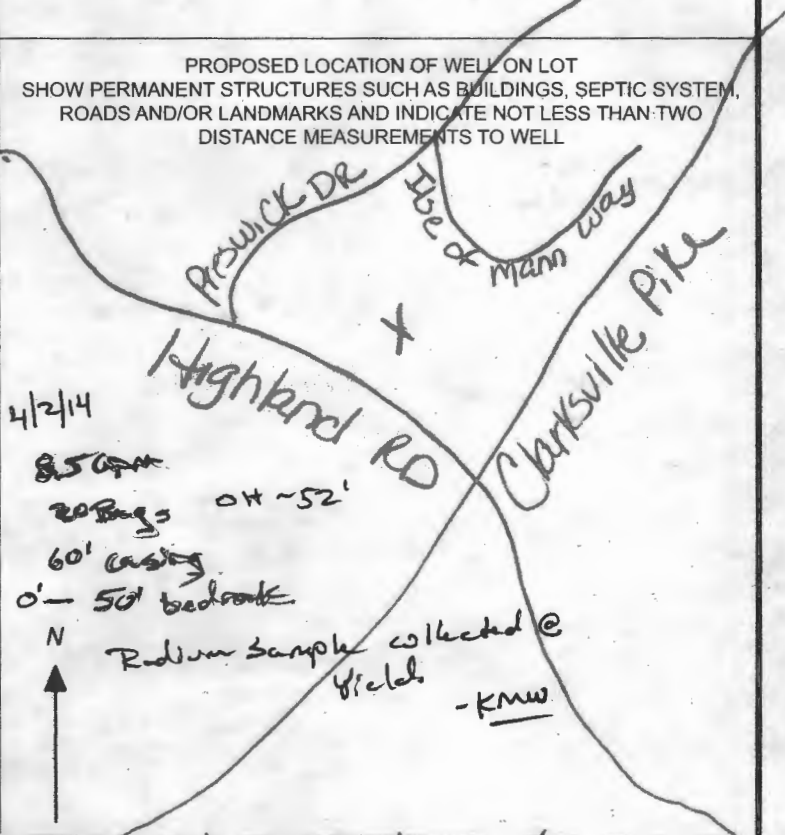 PROPOSED LOCATION OF WELL ON LOT
SHOW PERMANENT STRUCTURES SUCH AS BUILDINGS, SEPTIC SYSTEM,
ROADS AND/OR LANDMARKS AND INDICATE NOT LESS THAN TWO
DISTANCE MEASUREMENTS TO WELL
Preswick DR
Isle of Mann Way
X
Highland RD
Clarksville Pike
4/2/14
8.5 GPM
20 Bags OH ~52'
60' casing
0'- 50' bedrock
N
Radium Sample collected @
Yield
-KMW